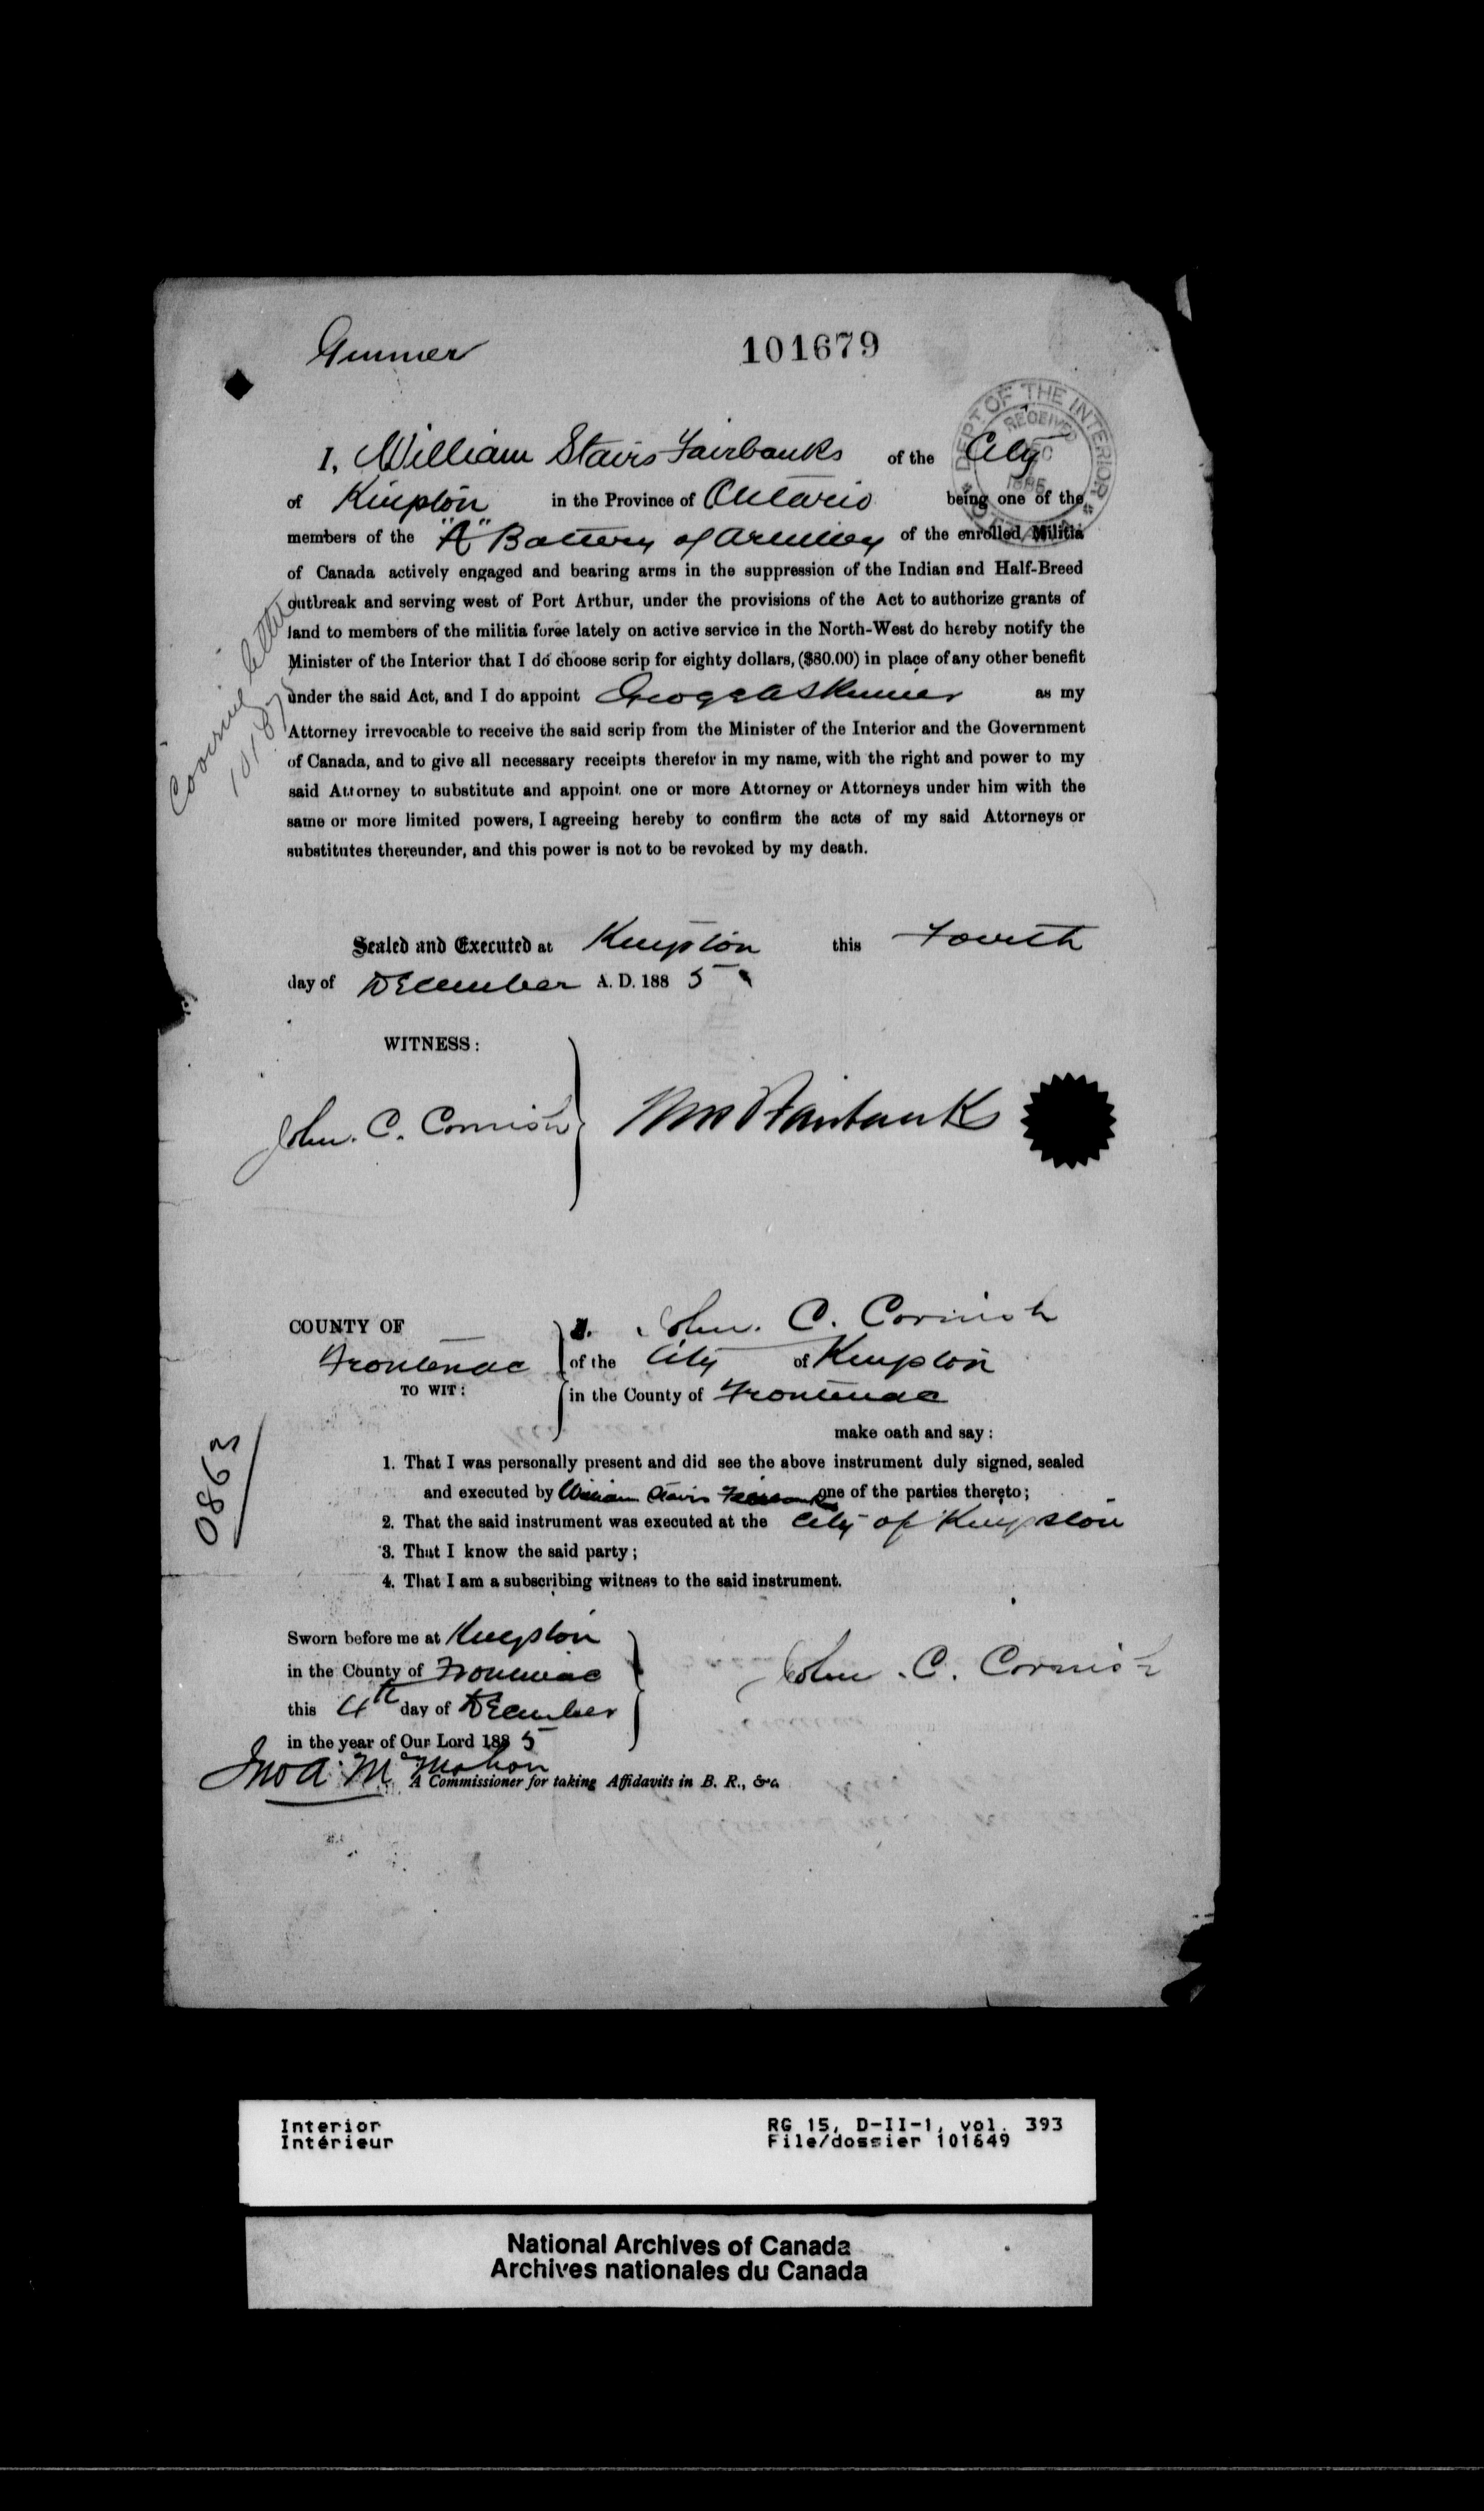 Gunner
101679
DEPT. OF THE INTERIOR
RECEIVED
DEC
1885
OTTAWA
I, William Stairs Fairbanks of the City
of Kingston in the Province of Ontario being one of the
members of the "A" Battery of Artillery of the enrolled Militia
of Canada actively engaged and bearing arms in the suppression of the Indian and Half-Breed
outbreak and serving west of Port Arthur, under the provisions of the Act to authorize grants of
land to members of the militia force lately on active service in the North-West do hereby notify the
Minister of the Interior that I do choose scrip for eighty dollars, ($80.00) in place of any other benefit
under the said Act, and I do appoint George A Skinner as my
Attorney irrevocable to receive the said scrip from the Minister of the Interior and the Government
of Canada, and to give all necessary receipts therefor in my name, with the right and power to my
said Attorney to substitute and appoint one or more Attorney or Attorneys under him with the
same or more limited powers, I agreeing hereby to confirm the acts of my said Attorneys or
substitutes thereunder, and this power is not to be revoked by my death.
Coovring letter
Sealed and Executed at Kingston this Fourth
day of December A. D. 1885
WITNESS:
John. C. Cornish
Wm S Fairbanks
COUNTY OF
Frontenac
TO WIT:
I. John. C. Cornish
of the City of Kingston
in the County of Frontenac
make oath and say:
1. That I was personally present and did see the above instrument duly signed, sealed
and executed by William Stairs Fairbanks one of the parties thereto;
2. That the said instrument was executed at the City of Kingston
3. That I know the said party;
4. That I am a subscribing witness to the said instrument.
0863
Sworn before me at Kingston
in the County of Frontenac
this 4th day of December
in the year of Our Lord 1885
John. C. Cornish
Jno A. McMahon
A Commissioner for taking Affidavits in B. R., &c.
Interior
Intérieur
RG 15, D-II-1, vol. 393
File/dossier 101649
National Archives of Canada
Archives nationales du Canada